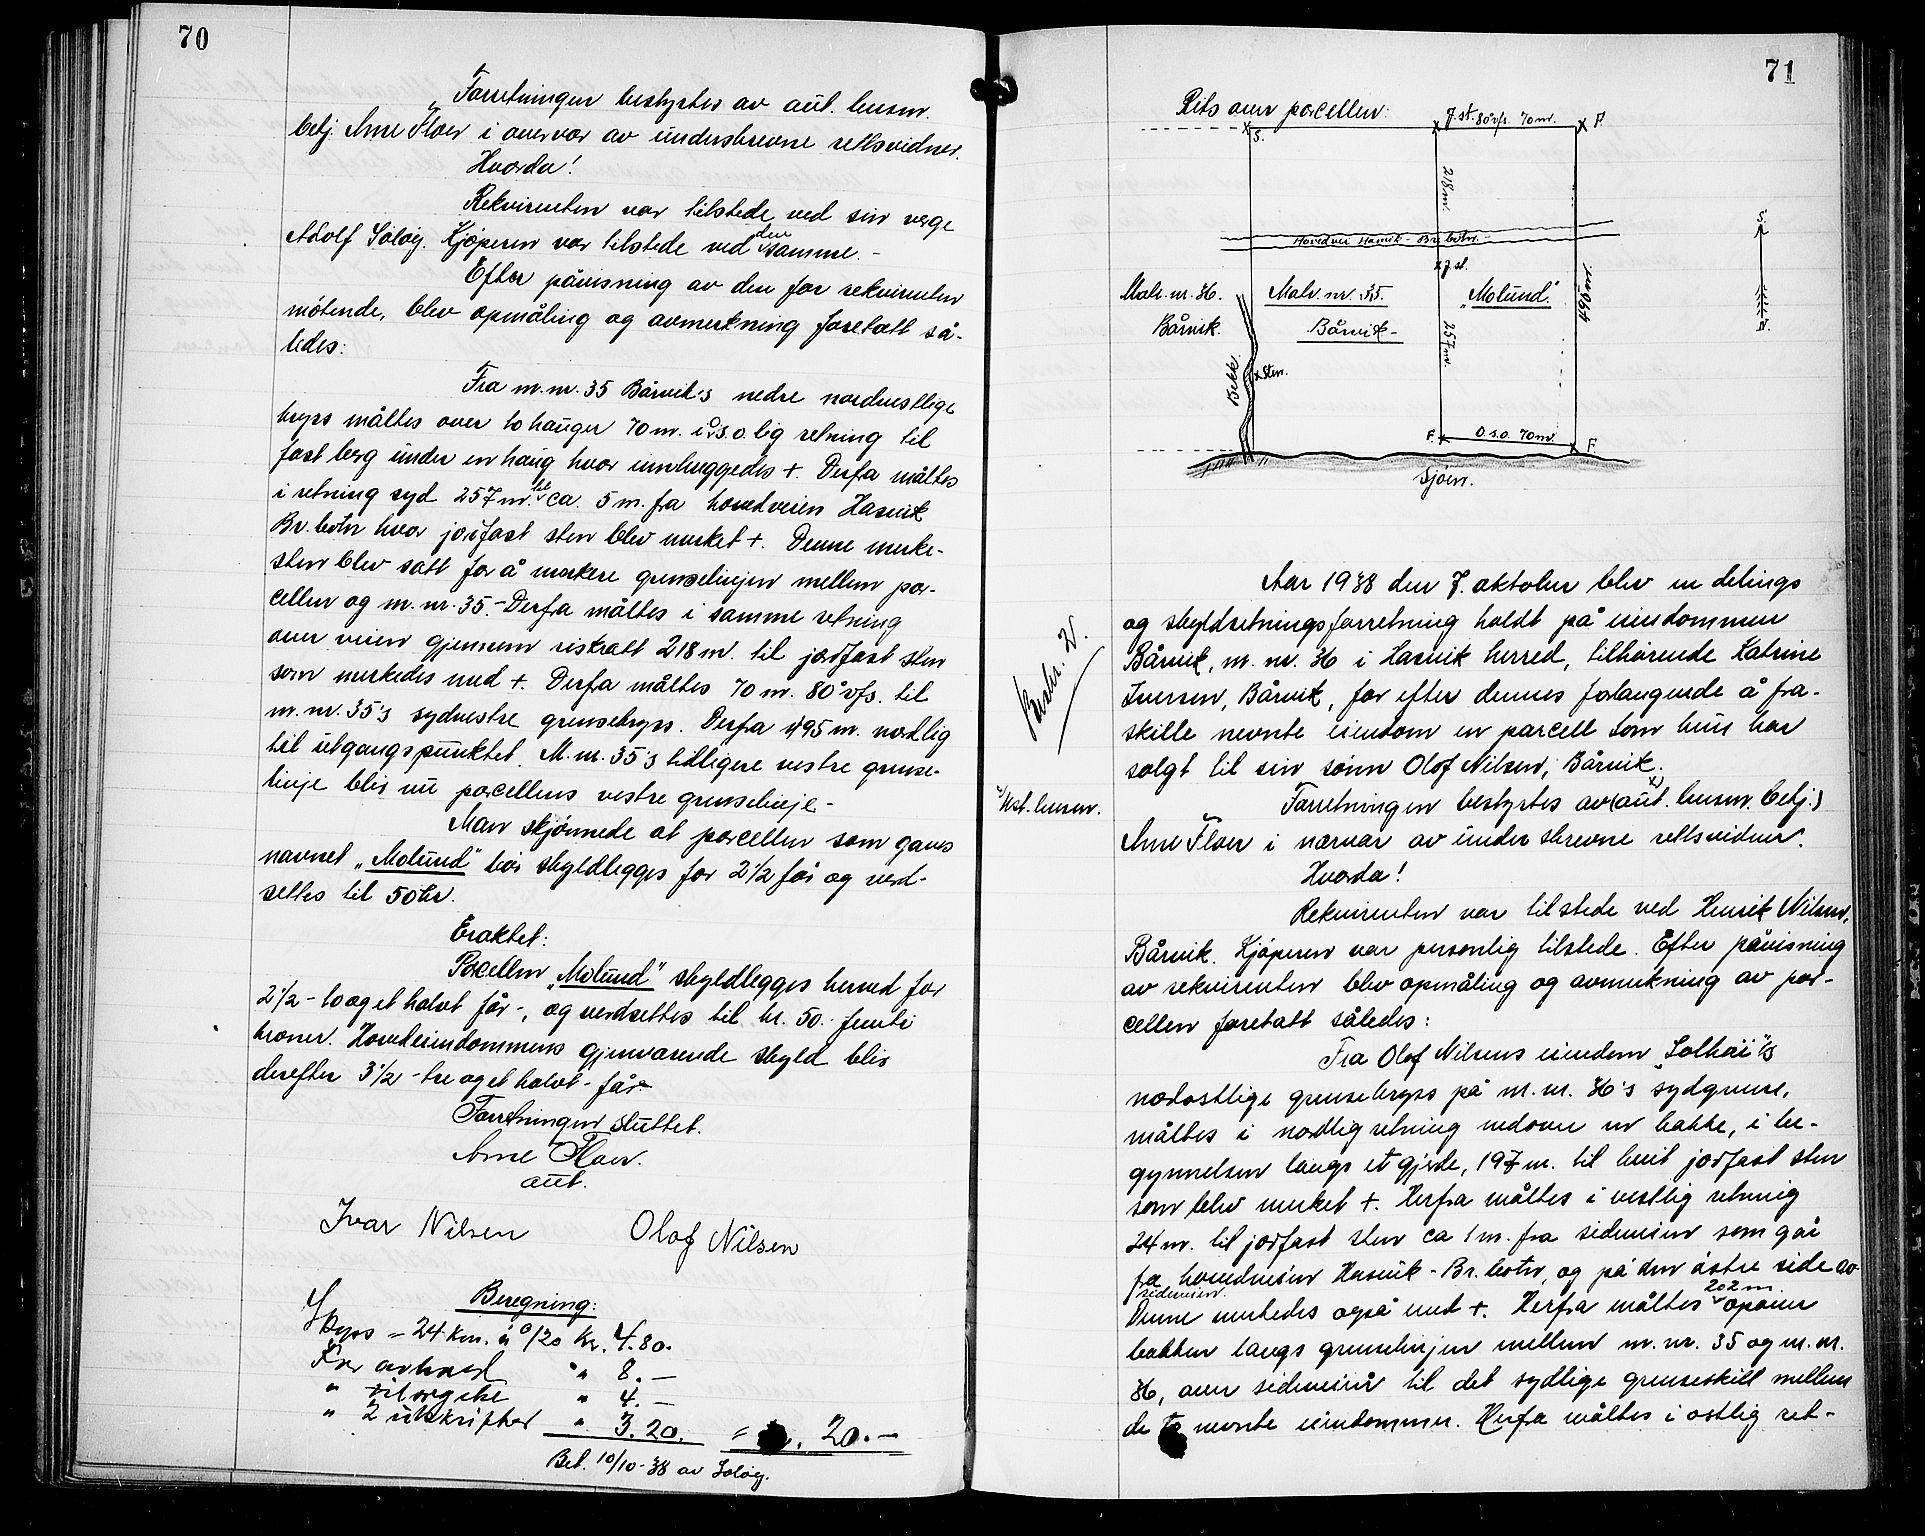 70
Forretningen bestyrtes av aut. lensm.
betj. Arne Floer i overvær av underskrevne rettsvidner.
Hvorda!
Rekvirenten var tilstede ved sin verge
Adolf Soløy. Kjøperen var tilstede ved den samme. -
Efter påvisning av den for rekvirenten
møtende, blev opmåling og avmerkning foretatt så-
ledes:
Fra m.nr. 35 Bårvik's nedre nordvestlige
kryss måltes over to hauger 70 m. i o.s.o. lig retning til
fast berg under en haug hvor innhuggedes +. Derfra måltes
i retning syd 257 m. til ca. 5 m. fra hovedveien Hasvik
Br.botn hvor jordfast sten blev merket +. Denne merke-
sten blev satt for å markere grenselinjen mellem par-
cellen og m.nr. 35. - Derfra måltes i samme retning
over veien gjennem riskratt 218 m. til jordfast sten
som merkedes med +. Derfra måltes 70 m. 80° vfs. til
m.nr. 35's sydvestre grensekryss. Derfra 495 m. nordlig
til utgangspunktet. M.nr. 35's tidligere vestre grense-
linje blir nu parcellens vestre grenselinje -
Man skjønnede at parcellen som gaves
navnet „Molund" bør skyldlegges for 2 1/2 før og verd-
settes til 50 kr.
Eraktet:
Parcellen „Molund" skyldlegges herved for
2 1/2 - to og et halvt får -, og verdsettes til kr. 50.- femti
kroner. Hovedeiendommens gjenværende skyld blir
derefter 3 1/2 - tre og et halvt - får.
Forretningen sluttet.
Arne Floer.
aut.
Ivar Nilsen Olaf Nilsen
Beregning:
Skyss - 24 km. à 0/20 kr. 4.80.
For avhold " 8.-
" " 4.-
" 2 utskrifter " 3.20. = kr. 20.-
Bet. 10/10-38 av Soløy.
71
Riss over parcellen:
S. 7. st. 80° vfs. 70 m. F.
218 m.
Hovedvei Hasvik - Br.botn.
x j.st.
S.
Matr. nr. 36. Matr. nr. 35. „Molund".
495 m.
Bårvik. Bårvik - 257 m.
N.
Bekk x Sten.
F. O.s.o. 70 m. F.
Sjøen.
Aar 1938 den 7. oktober blev en delings
og skyldsetningsforretning holdt på eiendommen
Bårvik, m. nr. 36 i Hasvik herred, tilhørende Katrine
Iversen, Bårvik, for efter dennes forlangende å fra-
skille nevnte eiendom en parcell som hun har
solgt til sin sønn Olaf Nilsen, Bårvik.
Forretningen bestyrtes av (aut. lensm. betj.) x)
x) Kst. lensm.
Arne Floer i nærvær av underskrevne rettsvidner.
Hvorda!
Rekvirenten var tilstede ved Henrik Nilsen,
Bårvik. Kjøperen var personlig tilstede. Efter påvisning
av rekvirenten blev opmåling og avmerkning av par-
cellen foretatt således:
Fra Olaf Nilsens eiendom „Solhøi"'s
nordostlige grensekryss på m.nr. 36's sydgrense,
måltes i nordlig retning nedover en bakke, i be-
gynnelsen langs et gjerde, 197 m. til hvit jordfast sten
som blev merket +. Herfra måltes i vestlig retning
24 m. til jordfast sten ca 1 m. fra sideveien som går
fra hovedveien Hasvik - Br.botn, og på den østre side av
sideveien.
Denne merkedes også med +. Herfra måltes 202 m. opover
bakken langs grenselinjen mellem m.nr. 35 og m.nr.
36, over sideveien til det sydlige grenseskill mellem
de to nevnte eiendommer. Herfra måltes i ostlig ret-